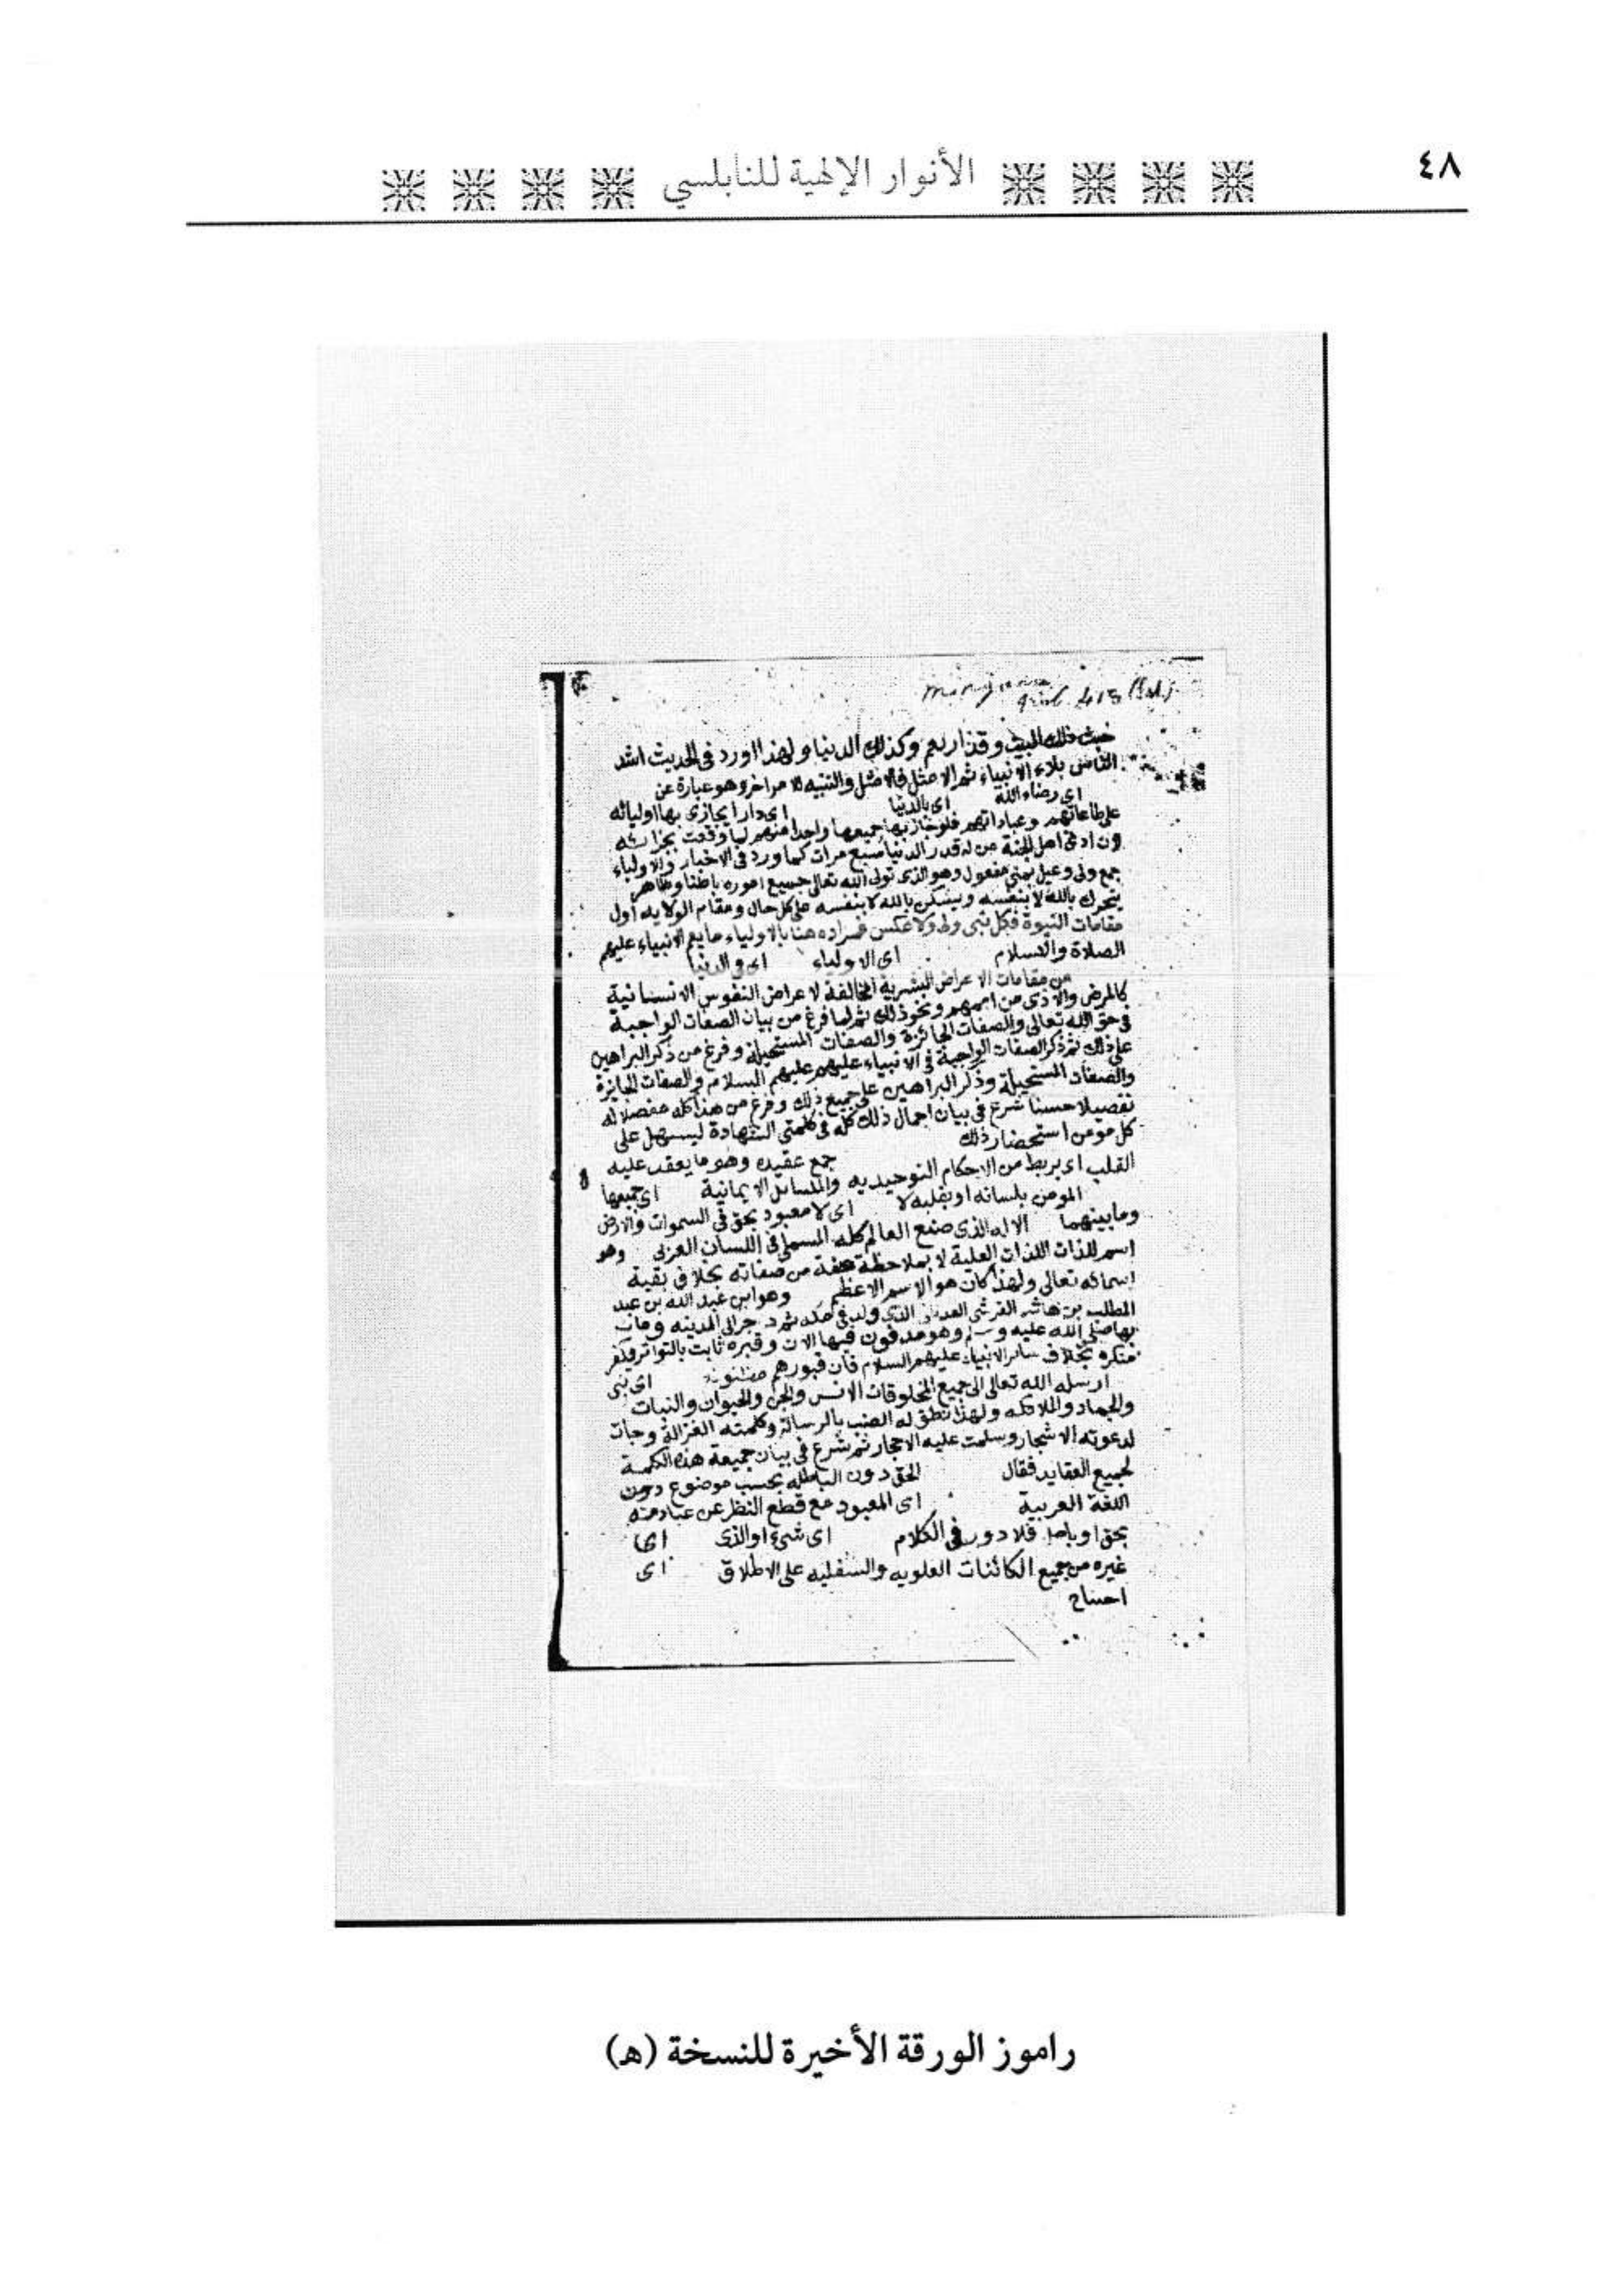 ٤٨
الأنوار الإلهية للنابلسي
خبث ذلك البيت وقذاريهم وكذلك الدنيا ولهذا ورد في الحديث اشد
الناس بلاء الانبياء ثم الامثل فالامثل والتنبيه لامر اخر وهو عبارة عن
اي رضاء الله اي بالدنيا اي دارا يجازي بها اوليائه
على طاعاتهم وعباداتهم فلو جازيها جميعها واحدا منهم لما وقعت بجزائه
لان ادنى اهل الجنة من له قدر الدنيا سبع مرات كما ورد في الاخبار والاولياء
جمع ولي وعيل بمعنى مفعول وهو الذي تولى الله تعالى جميع اموره باطنا وظاهر
يتحرك بالله لا بنفسه ويسكن بالله لا بنفسه على كل حال ومقام الولايه اول
مقامات النبوة فكل نبي ولي ولا عكس فمراده هنا بالاولياء ما يعم الانبياء عليهم
الصلاة والسلام اي الاولياء اي في الدنيا
من مقامات الاعراض البشرية المخالفة لاعراض النفوس الانسانية
كالمرض والاذى من اممهم ونحو ذلك ثم لما فرغ من بيان الصفات الواجبة
في حق الله تعالى والصفات الجائزة والصفات المستحيلة وفرغ من ذكر البراهين
على ذلك ثم ذكر الصفات الواجبة في الانبياء عليهم عليهم السلام والصفات الجايزة
والصفات المستحيلة وذكر البراهين على جميع ذلك وفرغ من هذا كله مفصلا له
تفصيلا حسنا شرع في بيان اجمال ذلك كله في كلمتي الشهادة ليسهل على
كل مومن استحضار ذلك
جمع عقيده وهو ما يعقب عليه
القلب اي يربط من الاحكام التوحيديه والمسائل الايمانية اي جميعها
المومن بلسانه او بقلبه لا اي لا معبود بحق في السموات والارض
وما بينهما الا اله الذي صنع العالم كله المسمى في اللسان العربي وهو
اسم للذات الذات العلية لا بملاحظة صفة من صفاته بخلاف بقية
اسمائه تعالى ولهذا كان هو الاسم الاعظم وهو ابن عبد الله بن عبد
المطلب بن هاشم القرشي العدناني الذي ولد في مكه ثم هاجر الى المدينه ومات
بها صلى الله عليه وسلم وهو مدفون فيها الان وقبره ثابت بالتواتر فيكفر
منكره بخلاف سائر الانبياء عليهم السلام فان قبورهم مظنونة اي نبي
ارسله الله تعالى الى جميع المخلوقات الانس والجن والحيوان والنبات
والجماد والملائكه ولهذا نطق له الضب بالرسالة وكلمته الغزالة وجات
لدعوته الاشجار وسلمت عليه الاحجار ثم شرع في بيان جميعة هذه الكلمة
لجميع العقايد فقال الحق دون الباطله بحسب موضوع دون
اللغة العربية اي المعبود مع قطع النظر عن عبادته
بحق او باطل فلا دور في الكلام اي شيء او الذي
غيره من جميع الكائنات العلويه والسفليه على الاطلاق اي
احتاج
راموز الورقة الأخيرة للنسخة (هـ)